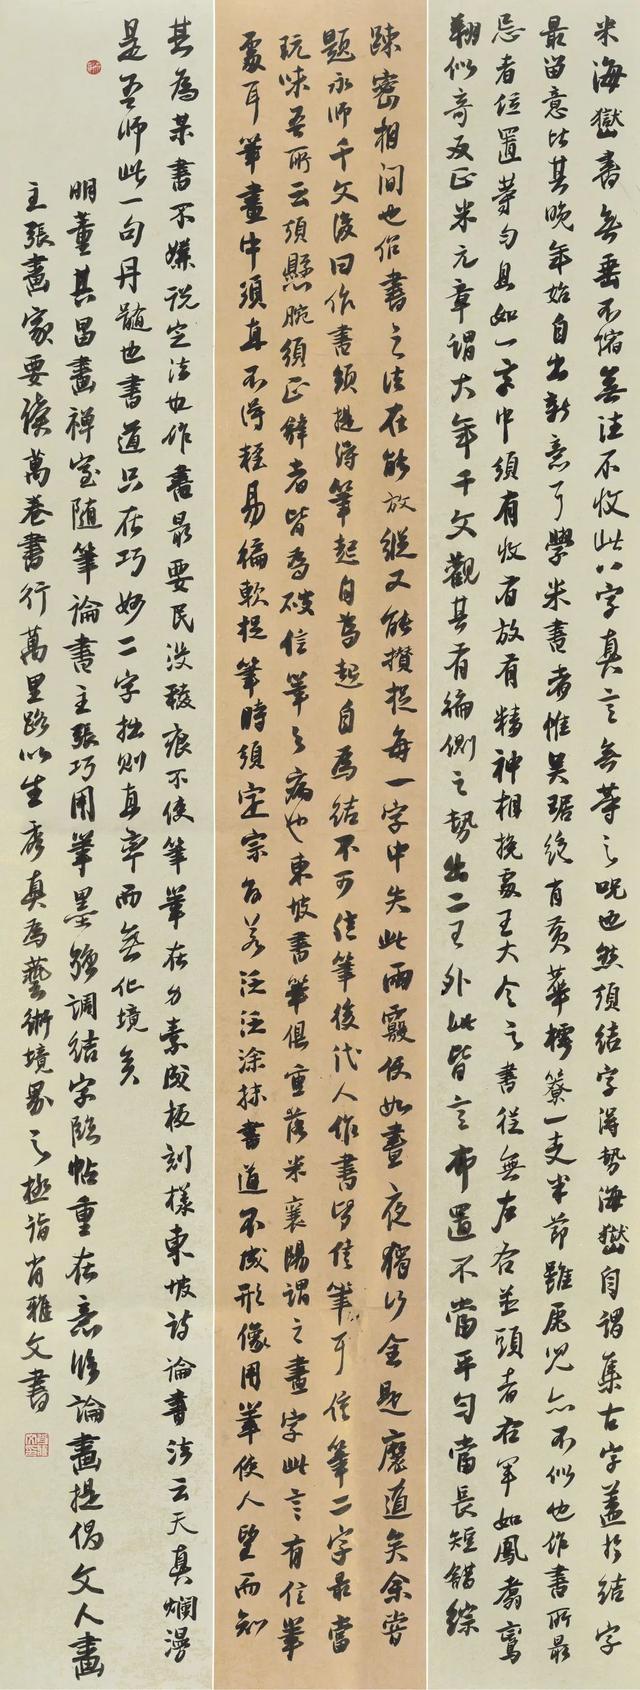 米海嶽書無垂不縮無往不收此八字真言無等之咒也然須結字得勢海嶽自謂集古字蓋於結字
最留意比其晚年始自出新意耳學米書者惟吳琚絕肖黃華樗寮一支半節雖虎兒亦不似也作書所最
忌者位置等勻且如一字中須有收有放有精神相挽處王大令之書從無左右並頭者右軍如鳳翥鸞
翔似奇反正米元章謂大年千文觀其有偏側之勢出二王外此皆言布置不當平勻當長短錯綜
疎密相間也作書之法在能放縱又能攢捉每一字中失此兩竅便如晝夜獨行全是魔道矣余嘗
題永師千文後曰作書須提得筆起自為起自為結不可信筆後代人作書皆信筆耳信筆二字最當
玩味吾所云須懸腕須正鋒者皆為破信筆之病也東坡書筆俱重落米襄陽謂之畫字此言有信筆
處耳筆畫中須直不得輕易偏軟捉筆時須定宗旨若泛泛塗抹書道不成形像用筆使人望而知
其為某書不嫌說定法也作書最要泯沒稜痕不使筆筆在紙素成板刻樣東坡詩論書法云天真爛漫
是吾師此一句丹髓也書道只在巧妙二字拙則直率而無化境矣
明董其昌畫禪室隨筆論書主張巧用筆墨強調結字臨帖重在意臨論畫提倡文人畫
主張畫家要讀萬卷書行萬里路以生秀真為藝術境界之極詣肖雅文書